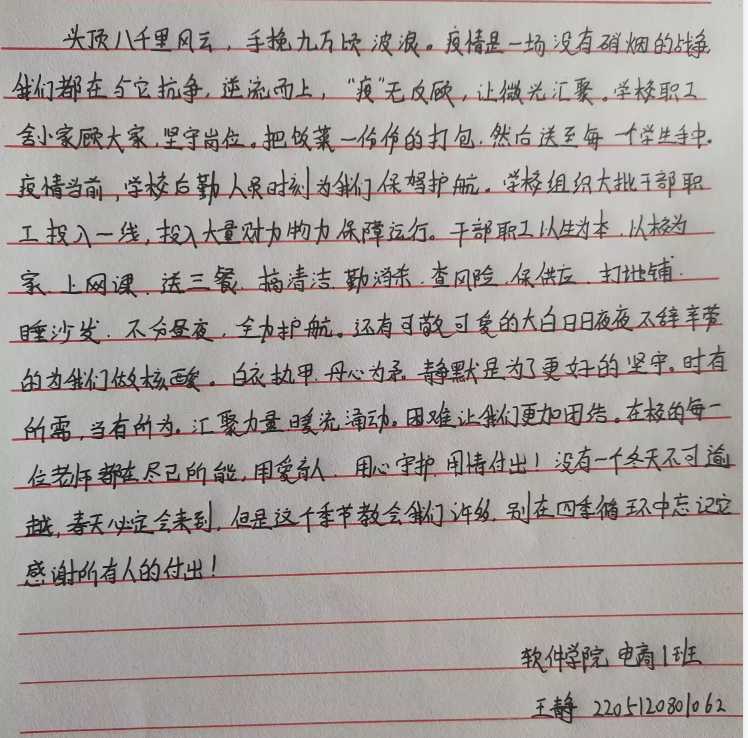 头顶八千里风云，手挽九万顷波浪。疫情是一场没有硝烟的战争，
我们都在与它抗争，逆流而上，“疫”无反顾，让微光汇聚。学校职工
舍小家顾大家，坚守岗位。把饭菜一份份的打包，然后送至每一个学生手中。
疫情当前，学校后勤人员时刻为我们保驾护航。学校组织大批干部职
工投入一线，投入大量财力物力保障运行。干部职工以生为本，以校为
家，上网课，送三餐，搞清洁，勤消杀，查风险，保供应，打地铺，
睡沙发，不分昼夜，全力护航。还有可敬可爱的大白日日夜夜不辞辛劳
的为我们做核酸。白衣执甲，丹心为矛，静默是为了更好的坚守。时有
所需，当有所为。汇聚力量暖流涌动。困难让我们更加团结。在校的每一
位老师都在尽己所能，用爱育人，用心守护，用情付出！没有一个冬天不可逾
越，春天必定会来到，但是这个季节教会我们许多，别在四季循环中忘记它
感谢所有人的付出！
软件学院 电商1班
王静 2205120801062